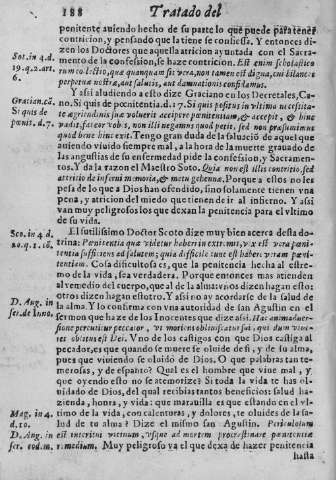 188 Tratado del
penitente auiendo hecho de su parte lo que puede para tener
contricion, y pensando que la tiene se confiessa. Y entonces di-
zen los Doctores que aquella atricion ayuntada con el Sacra-
Sot. in 4. d. mento de la confession, se haze contricion. Est enim scholastico
19. q. 2. art. rum collectio, quæ quanquam sit vera, non tamen est digna, cui
6. perpetuæ nostræ, aut salutis, aut damnationis confidamus.
Y assi aludiendo a esto dize Graciano en los Decretales, Ca-
Gracian. cã. no. Si quis de pœnitentia. d. 17. Si quis positus in vltimo necessita-
Si quis de te ægritudinis suæ voluerit accipere pœnitentiam, & accipit, & hinc
pœnit. d. 7. vadit, fateor vobis, non illi negamus quod petit, sed non præsumimus
quod bene hinc exit. Tengo gran duda de la saluació de aquel que
auiendo viuido siempre mal, a la hora de la muerte grauado de
las angustias de su enfermedad pide la confession, y Sacramen-
tos. Y da la razon el Maestro Soto. Quia non est illis contritio, sed
attritio de infirmi memoria, & metu gehennæ. Porque a estos no les
pesa de lo que a Dios han ofendido, sino solamente tienen vna
pena, y atricion del miedo que tienen de ir al infierno. Y assi
van muy peligrosos los que dexan la penitencia para el vltimo
de su vida.
Sco. in 4. d. El sutilissimo Doctor Scoto dize muy bien acerca desta do-
20. q. 1. trina: Pœnitentia quæ videtur haberi in extremis, vix est vera pœni-
tentia sufficiens ad salutem; quia difficile tunc est haberi veram pœni-
tentiam. Cosa dificultosa es, que la penitencia hecha al estre-
mo de la vida, sea verdadera. Porque entonces mas atienden
al remedio del cuerpo, que al de la alma: vnos dizen hagan esto:
otros dizen hagan estotro. Y assi no ay acordarse de la salud de
D. Aug. in la alma. Y lo confirma con vna autoridad de san Agustin en el
ser. de Inno. sermon que haze de los Inocentes que dize assi. Hac animaduer-
sione percutitur peccator, vt moriens obliuiscatur sui, qui dum viue-
ret oblitus est Dei. Vno de los castigos con que Dios castiga al
pecador, es que quando se muere se oluide de si, y de su alma,
pues que viuiendo se oluidó de Dios. O que palabras tan te-
merosas, y de espanto? Qual es el hombre que viue mal, y
que oyendo esto no se atemorize? Si toda la vida te has ol-
uidado de Dios, del qual recibias tantos beneficios: salud ha-
zienda, honra, y vida: que marauilla es que estando en el vl-
Mag. in 4. timo de la vida, con calenturas, y dolores, te oluides de la sa-
d. 10. lud de tu alma? Dize el mismo san Agustin. Periculotum
D. Aug. in est interitui vicinum, vsque ad mortem procrastinare pœnitentiæ
ser. eod. m. remedium. Muy peligroso va el que dexa de hazer penitencia
hasta